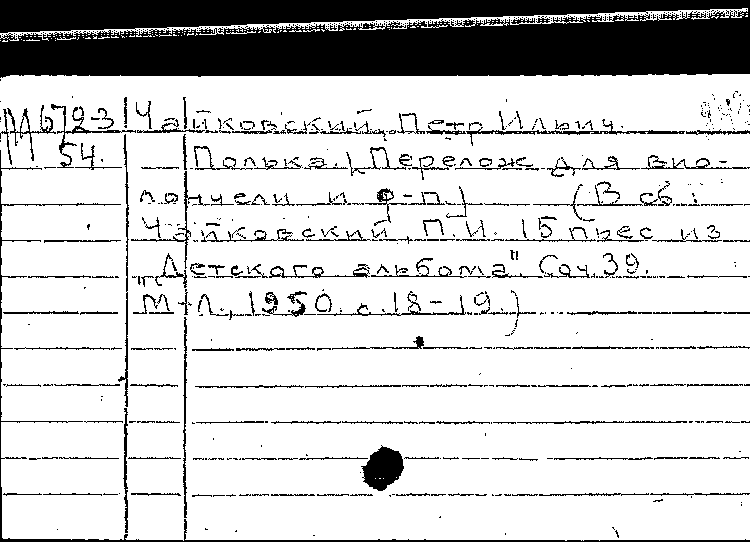 М 672-3 Чайковский, Петр Ильич.
54. Полька. [Перелож для вио-
лончели и ф-п.] (В сб:
Чайковский, П.И. 15 пьес из
"Детского альбома". Соч. 39.
М-Л., 1950. с. 18-19.)